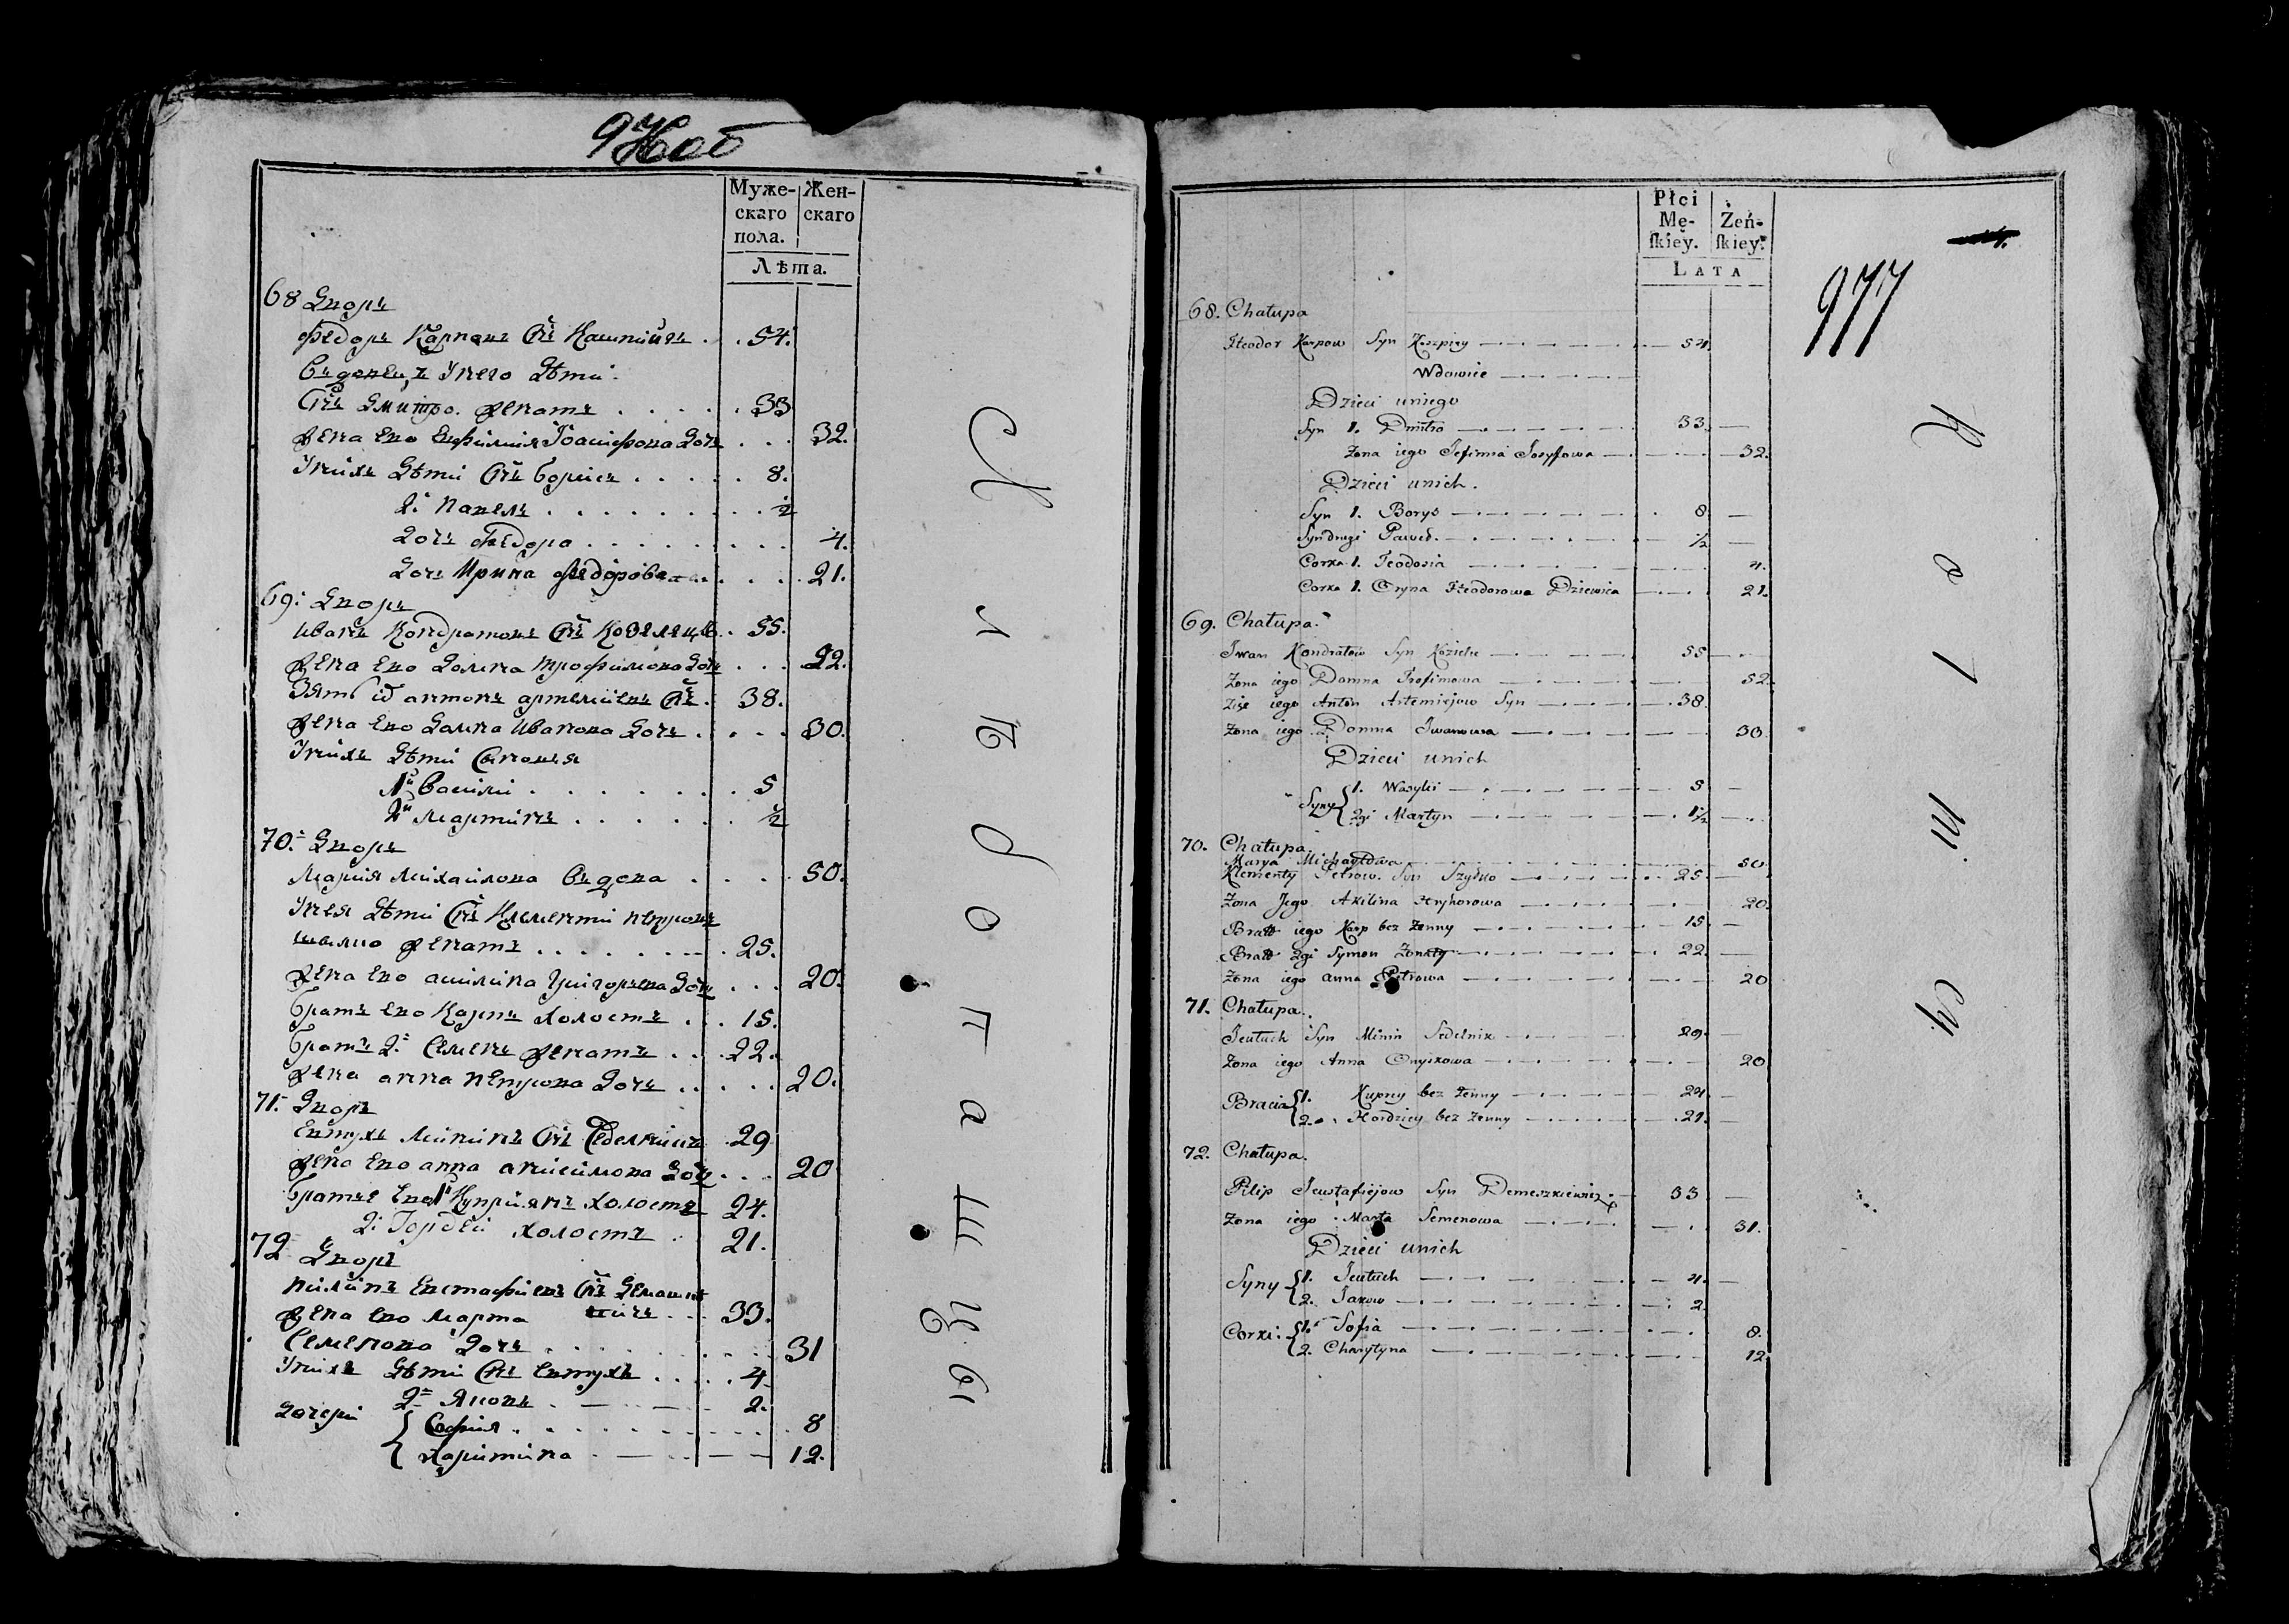 976 об
Муже- Жен-
скаго скаго
пола.
Лѣта.
68 Дворъ
Федоръ Карповъ Снъ . . 54.
Вдовецъ У него Дѣти
Снъ Дмитро. женатъ . . . . . 33
жена Ево Евфимия Иоасифова Дочь . . . 32.
У нихъ Дѣти Снъ Борисъ . . . . . 8.
2й Павелъ . . . . . . . . . ½
Дочь Федора . . . . . . . . . 4.
Дочь Ирина Федорова . . . . 21.
69: Дворъ
Иванъ Кондратовъ Снъ . . 55.
жена Ево Домна Трофимова Дочь . . . 52.
Зять Антонъ Артемиевъ Снъ . 38.
жена Ево Домна Иванова Дочь . . . . . 30.
У нихъ Дѣти Сыновья
1й Васили . . . . . . . . 5
2й Мартинъ . . . . . . ½
70.= Дворъ
Мария Михайлова Вдова . . . . . 50.
У нея Дѣти Снъ Клементи Петровъ
женатъ . . . . . . . 25.
жена Ево Акилина Григорьева Дочь . . . 20.
Братъ Ево Карпъ холостъ . . . 15.
Братъ 2й Семенъ женатъ . . . . 22.
жена анна Петрова Дочь . . . . . 20.
71.= Дворъ
Евтухъ Мининъ Снъ . 29
жена Ево анна анисимова Дочь . . . 20
Братья Ево 1й Куприянъ холостъ 24.
2й Гордѣй холостъ . 21.
72 Дворъ
Пилипъ Евстафиевъ Снъ
жена Ево Марта . . . 33.
Семенова Дочь . . . . . . . . 31
У нихъ Дѣти Снъ Евтухъ . . . . . 4.
2й Яковъ . — — — 2.
Дочери { София . . . . . . . . . . 8
{ Харитина . — — — — 12.
Płci
Mę- Żeń-
ſkiey. ſkiey.
LATA
977
68. Chałupa
Fteodor Karpow Syn Koszpiey 54
Wdowiec
Dzieci uniego
Syn 1. Dmitro 33. —
Zona iego Jefimia Josyfowa 32.
Dzieci unich.
Syn 1. Borys 8 —
Syn drugi Paweł ½ —
Corka 1. Teodosia 4.
Corka 1. Oryna Fteodorowa Dziewica 21.
69. Chałupa.
Jwan Kondratow Syn 55
Zona iego Domna Trofimowa 52.
Zięć iego Anton Artemiejow Syn 38.
Zona iego Domna Jwanowa 30.
Dzieci unich
Syny { 1. Wasyli 5 —
{ 2gi Martyn 1½
70. Chałupa.
Marya Michayłowa 50
Klementy Petrow. Syn Szyłko 25.
Zona Jego Akilina Hryhorowa 20.
Bratt iego Karp bez Zenny 15 —
Bratt 2gi Symon Zonaty 22. —
Zona iego anna Pietrowa 20
71. Chałupa.
Jeutuch Syn Minin Sedelnik 29. —
Zona iego Anna Onyszkowa 20
Bracia { 1. Kuprey bez Zenny 24 —
{ 2. Hordziey bez Zenny 21. —
72. Chałupa.
Pilip Jewstafiejow Syn Demeszkiewicz 33 —
Zona iego Marta Semenowa 31.
Dzieci unich
Syny { 1. Jeutuch 4. —
{ 2. Jakow 2.
Corki: { 1. Sofia 8.
{ 2. Charytyna 12